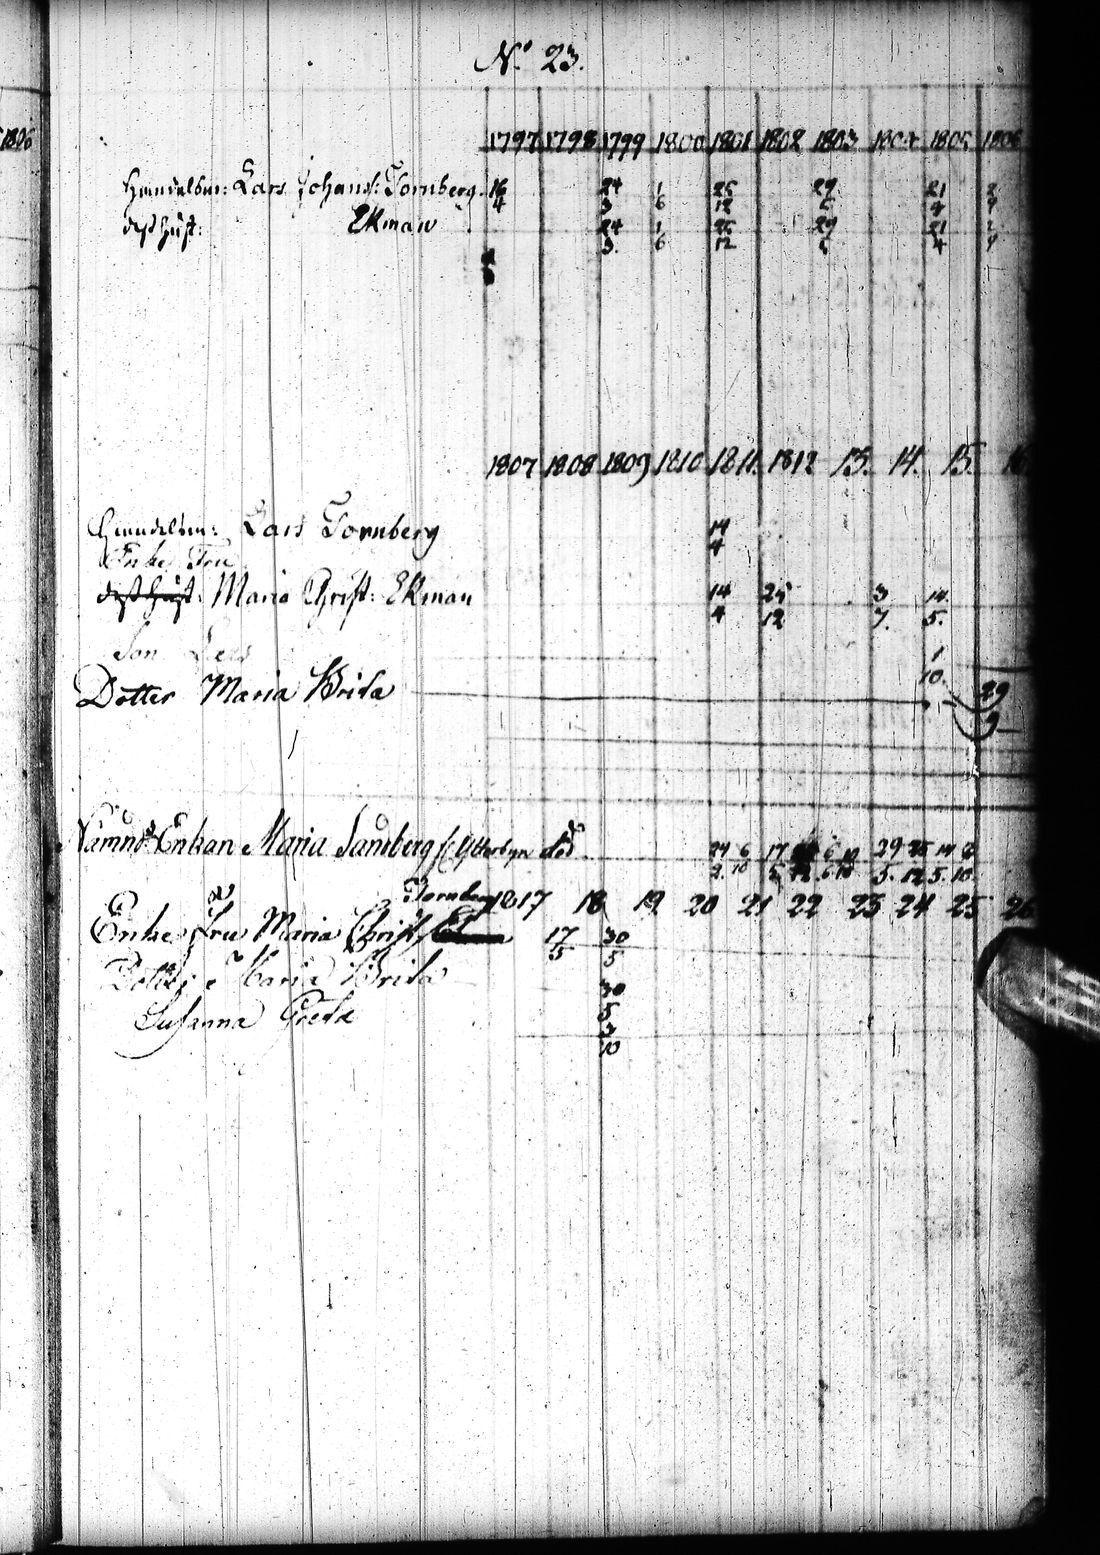 No 23.
1806
1797 1798 1799 1800 1801 1802 1803 1804 1805 1806
Handelsm: Lars Johans: Tornberg. 16 24 1 25 29 21 2
4 3 6 12 6 4
dess hust: Ekman 24 1 25 29 21
3. 6 12 4
1807 1808 1809 1810 1811. 1812 13. 14. 15. 16
Handelsm: Lars Tornberg 14
4
Enke Fru
dess hust: Maria Christ: Ekman 14 25 3 14.
4 12 7. 5.
Son Lars 1
10.
Dotter Maria Brita 29
9
Nämnd: Enkan Maria Sandberg död 24 6 17 6 10 29 25 14 6
2. 10 5. 12 6 10 5. 12 5. 10.
Tornberg 1817 18 19. 20 21 22 23 24 25 26
Enke Fru Maria Christ: 17 30
5 5
Dotter Maria Brita 30
5
Susanna Greta 3
10